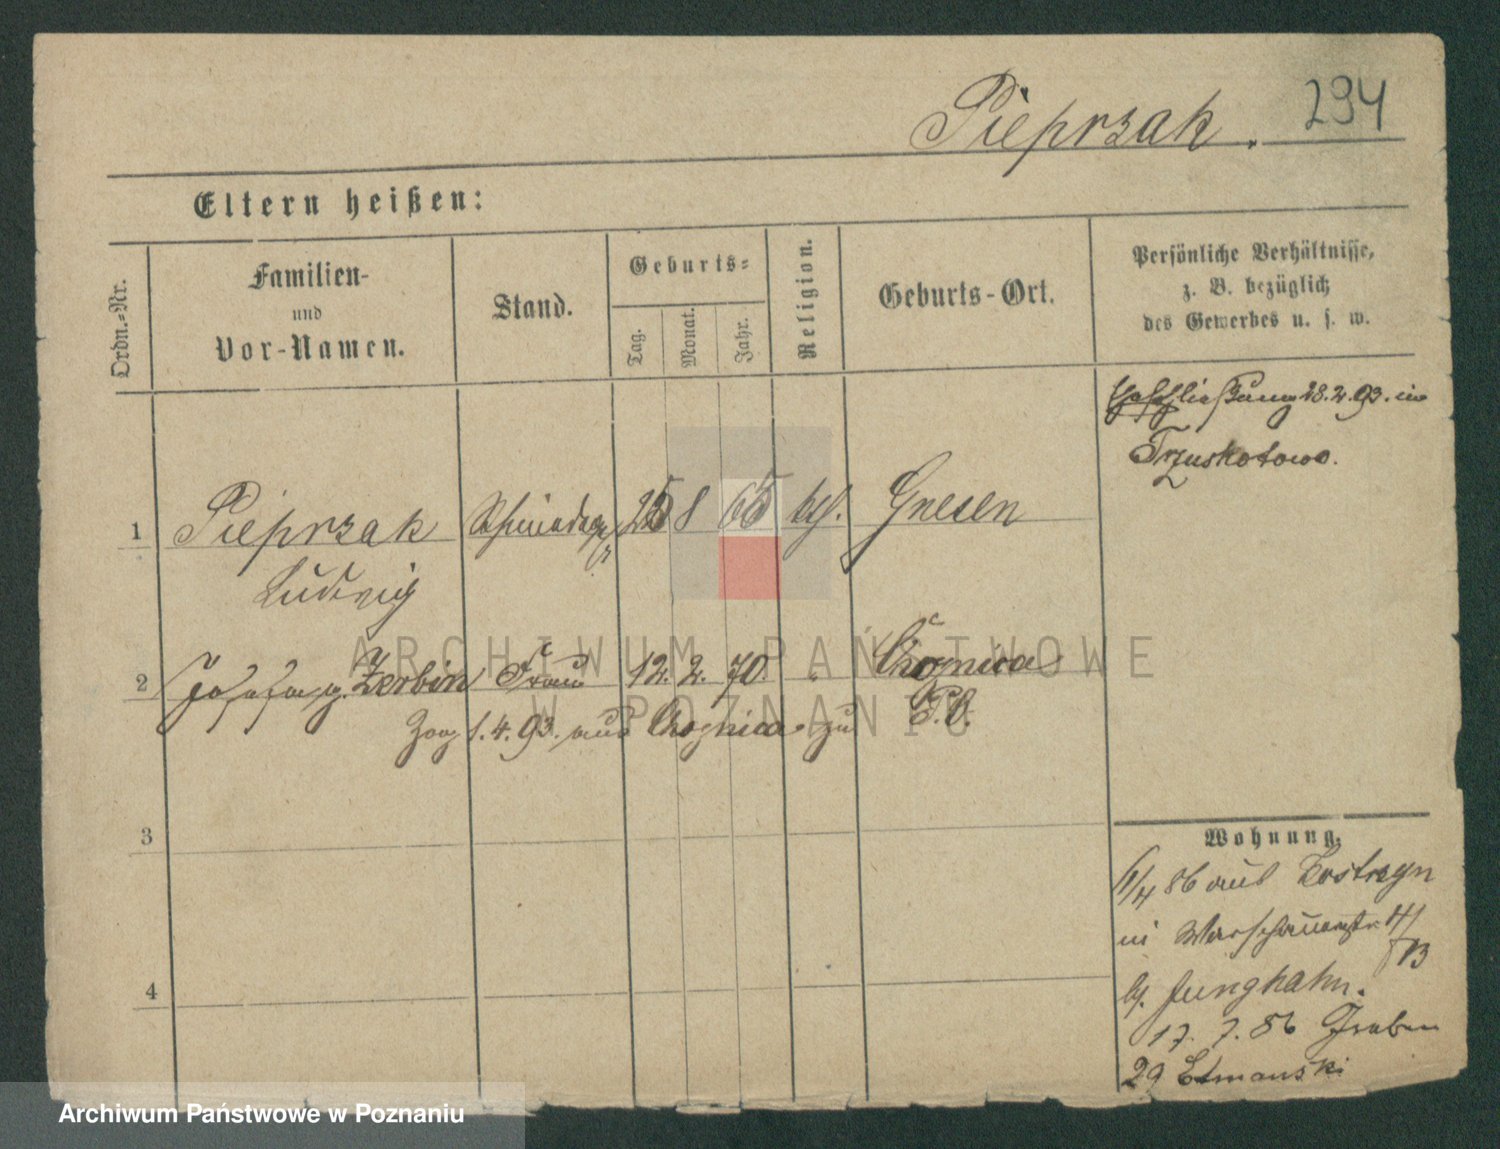 Pieprzak. 294
Eltern heißen:
Ordn.-Nr.
Familien-
und
Vor-Namen.
Stand.
Geburts-
Tag.
Monat.
Jahr.
Religion.
Geburts-Ort.
Persönliche Verhältnisse,
z. B. bezüglich
des Gewerbes u. s. w.
Ehschließung 28.2.93. in
Trzuskotowo.
1 Pieprzak 25 8 65 kth. Gnesen
Ludwig
2 Josefa g. Zerbin Frau 12. 2. 70. " Chojnica
P.O.
Zog 1.4.93. aus Chojnica zu
3
4
Wohnung.
1/4 86 aus
in Warschauerstr.
b. Junghahn.
17. 7. 86 Graben
29 Etmanski
ARCHIWUM PAŃSTWOWE
W POZNANIU
Archiwum Państwowe w Poznaniu